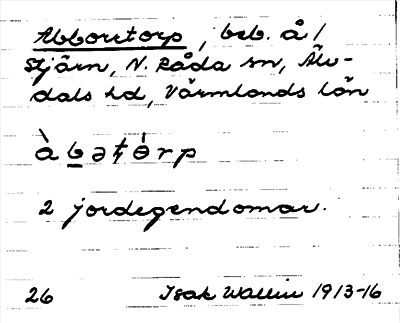 Abborrtorp, beb. å /
Stjärn, N. Råda sn, Älv-
dals hd, Värmlands län
àb̲ət̬ɵ́rp
2 jordegendomar.
26 Isak Wallin 1913-16